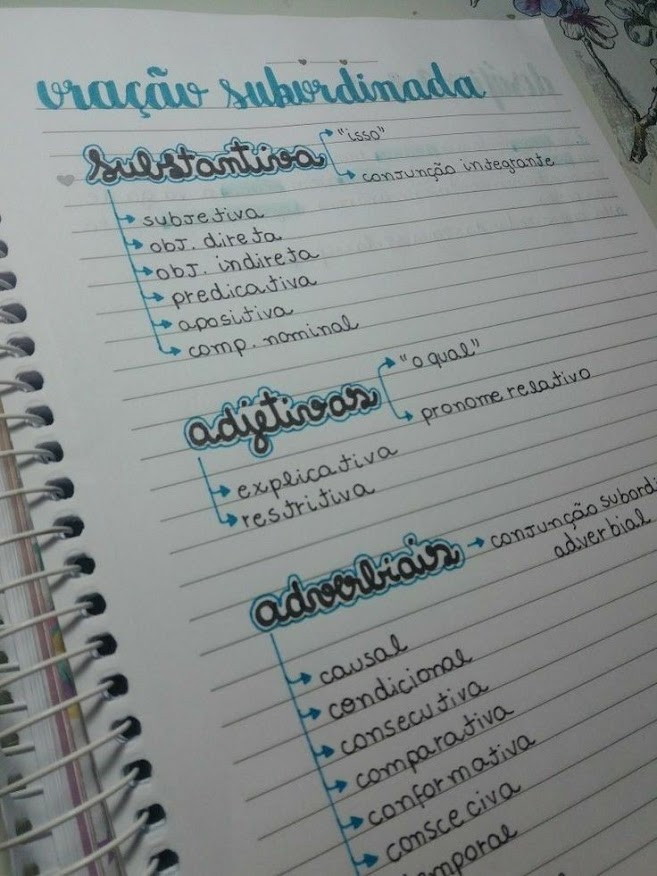 oração subordinada
substantiva
"isso"
conjunção integrante
subjetiva
obj. direta
obj. indireta
predicativa
apositiva
comp. nominal
adjetivas
"o qual"
pronome relativo
explicativa
restritiva
adverbiais
conjunção subordi
adverbial
causal
condicional
consecutiva
comparativa
conformativa
consceciva
temporal